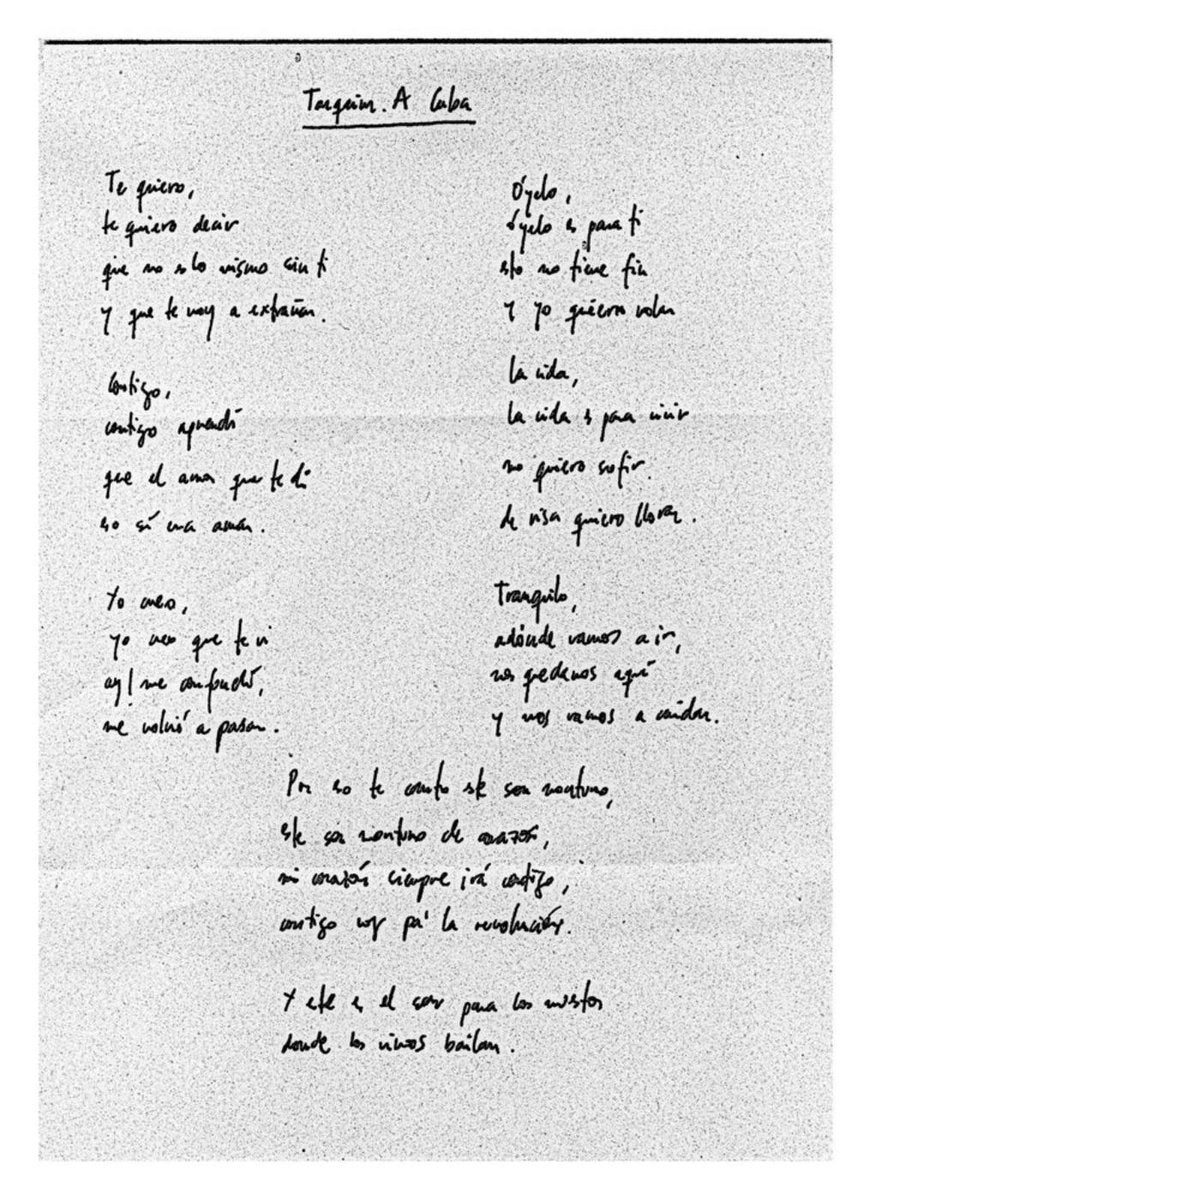 Tarquim. A Cuba
Te quiero,
te quiero decir
que no es lo mismo sin ti
y que te voy a extrañar.
Contigo,
contigo aprendí
que el amor que te di
eso sí era amar.
Yo creo,
yo creo que te vi
ay! me confundí,
me volvió a pasar.
Óyelo,
óyelo es para ti
esto no tiene fin
y yo quiero volar
La vida,
la vida es para vivir
no quiero sufrir.
de risa quiero llorar.
Tranquilo,
adónde vamos a ir,
nos quedamos aquí
y nos vamos a cuidar.
Por eso te canto este son montuno,
este son montuno de corazón,
mi corazón siempre irá contigo,
contigo voy pa' la revolución.
Y este es el son para los muertos
donde los vivos bailan.